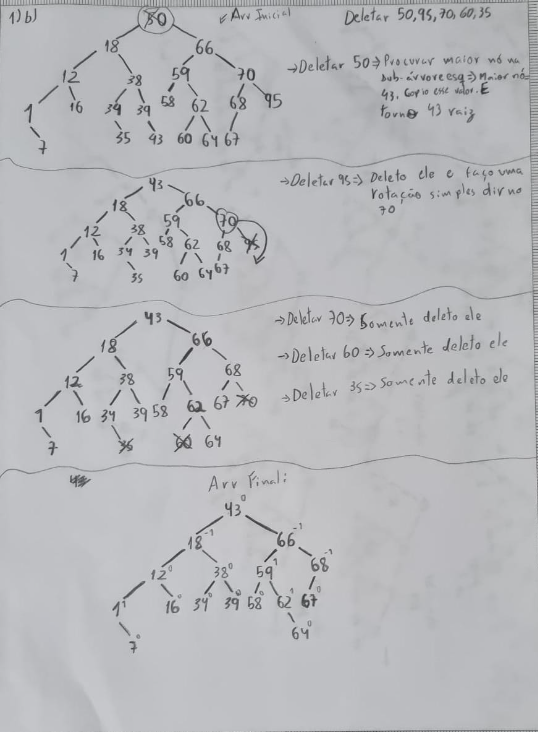 1)b) 50 ↙ Arv Inicial Deletar 50,95,70,60,35
18 66
12 38 59 70
1 16 34 39 58 62 68 95
7 35 43 60 64 67
→Deletar 50⇒Procurar maior nó na
sub-árvore esq⇒Maior nó
43. Copio esse valor. E
torno 43 raiz
43
18 66
12 38 59 70
1 16 34 39 58 62 68 95
7 35 60 64 67
→Deletar 95⇒ Deleto ele e faço uma
rotação simples dir no
70
43
18 66
12 38 59 68
1 16 34 39 58 62 67 70
7 35 60 64
→Deletar 70⇒ Somente deleto ele
→Deletar 60⇒Somente deleto ele
→Deletar 35⇒Somente deleto ele
Arv Final:
43⁰
18⁻¹ 66⁻¹
12⁰ 38⁰ 59¹ 68⁻¹
1¹ 16⁰ 34⁰ 39⁰ 58⁰ 62¹ 67⁰
7⁰ 64⁰